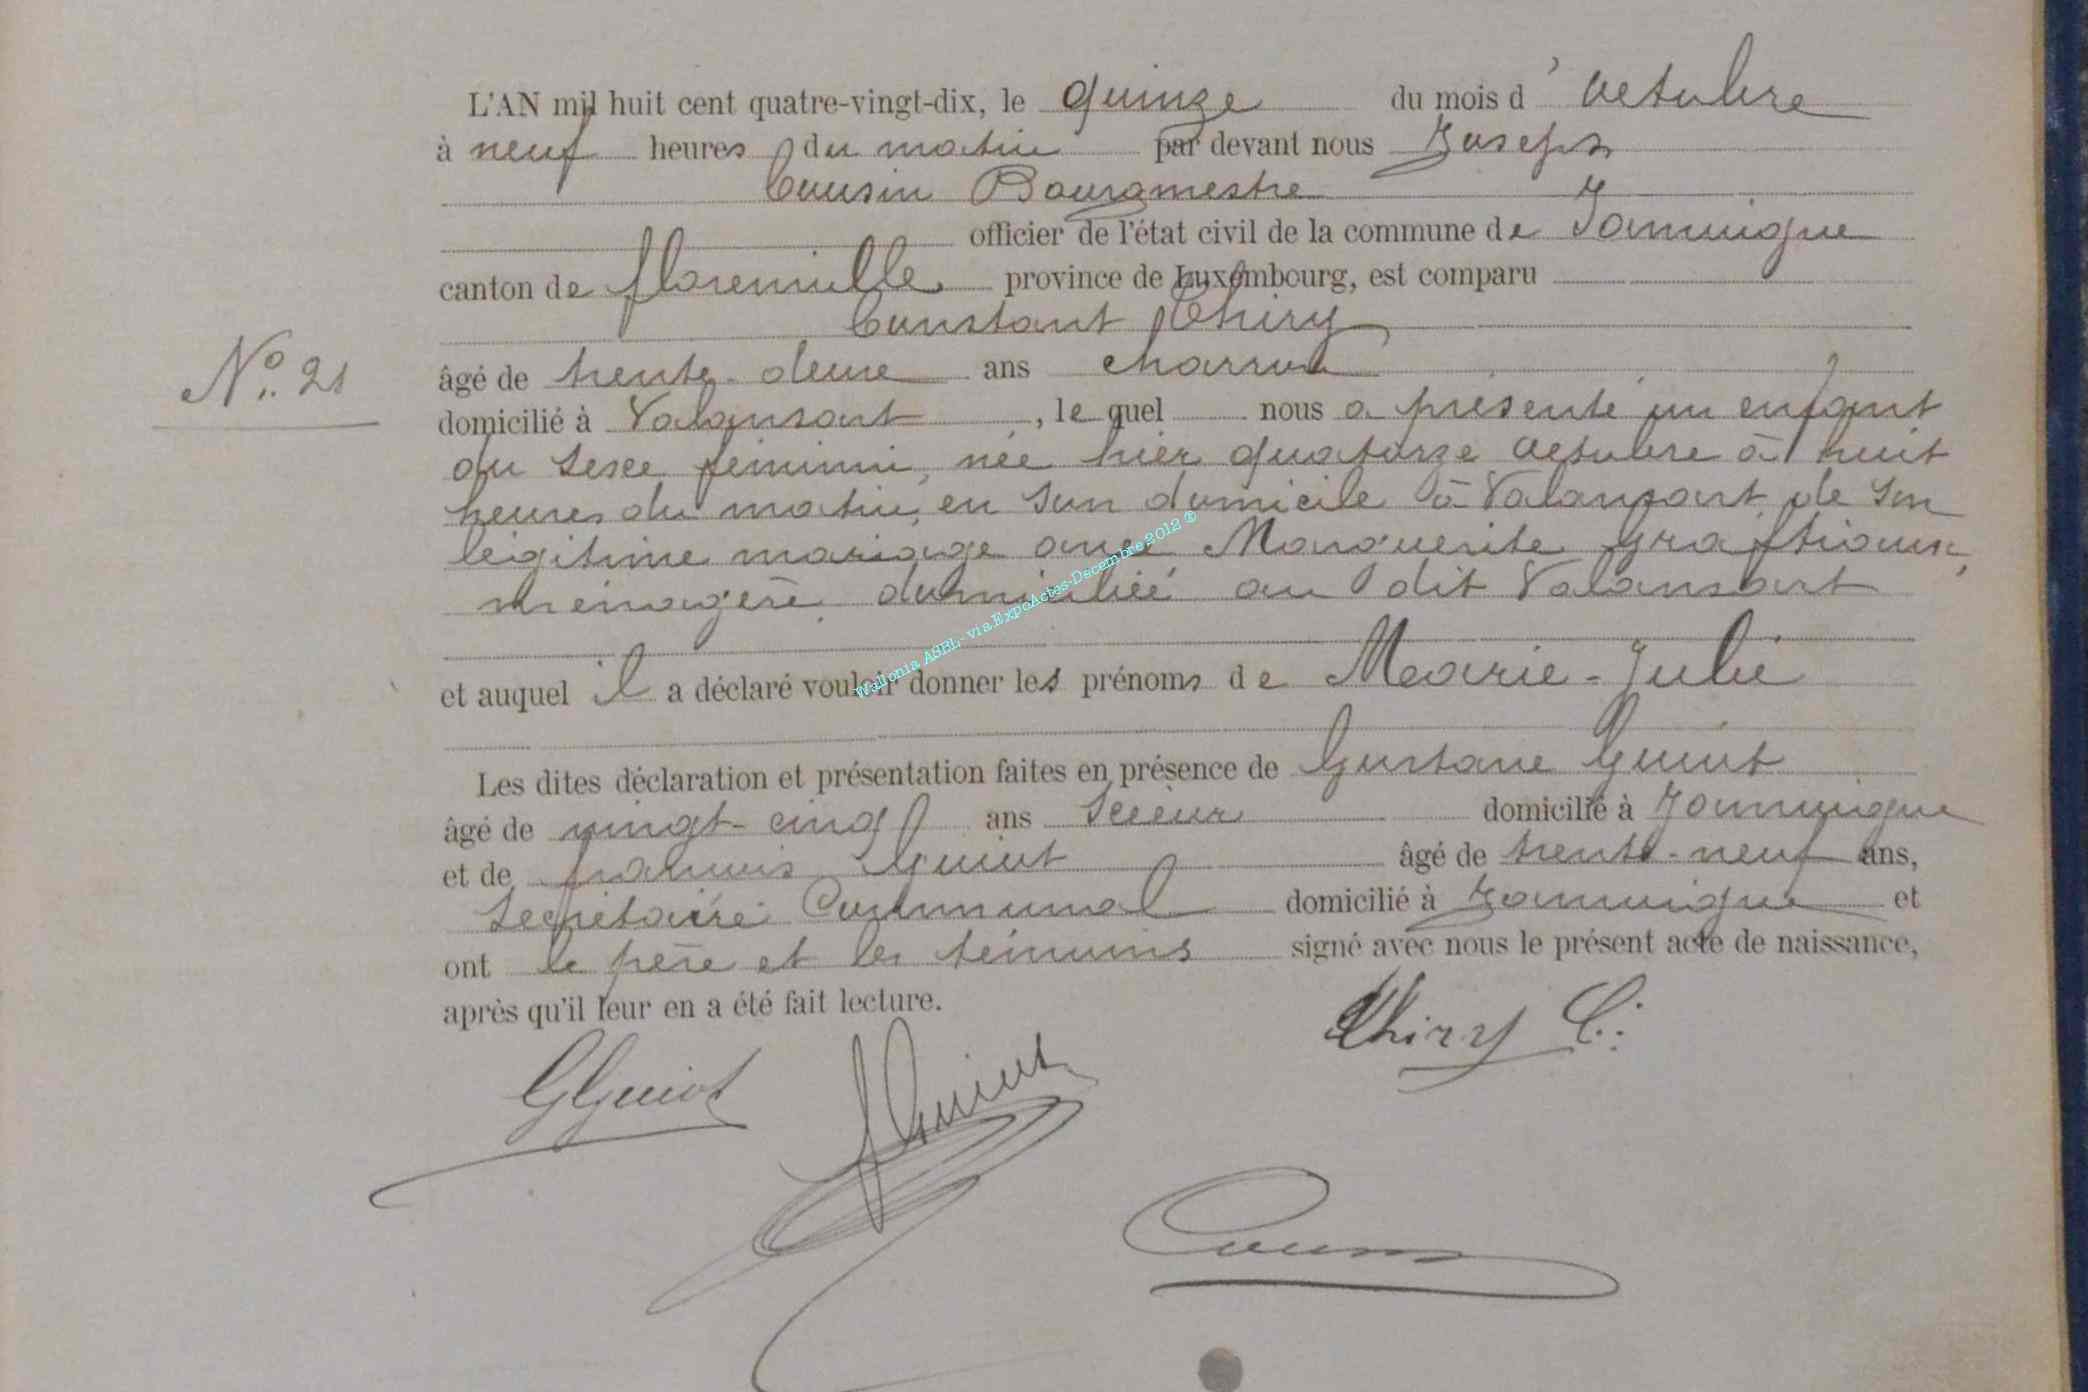 L'AN mil huit cent quatre-vingt-dix, le quinze du mois d'octobre
à neuf heures du matin par devant nous Joseph
Cousin Bourgmestre
officier de l'état civil de la commune de Jamoigne
canton de florenville province de Luxembourg, est comparu
Constant Thiry
N° 21
âgé de trente-deux ans charron
domicilié à Valansart, le quel nous a présenté un enfant
du sexe féminin, née hier quatorze octobre à huit
heures du matin, en son domicile à Valansart de son
légitime mariage avec Marguerite Graftiaux,
ménagère domiciliée au dit Valansart
et auquel il a déclaré vouloir donner les prénoms de Marie-Julie
Les dites déclaration et présentation faites en présence de Gustave Guiot
âgé de vingt-cinq ans scieur domicilié à Jamoigne
et de francois Guiot âgé de trente-neuf ans,
Secrétaire Communal domicilié à Jamoigne et
ont le père et les témoins signé avec nous le présent acte de naissance,
après qu'il leur en a été fait lecture.
Thiry C.
GGuiot
fGuiot
Cousin
Wallonia ASBL - via ExpoActes-Decembre 2012 ®